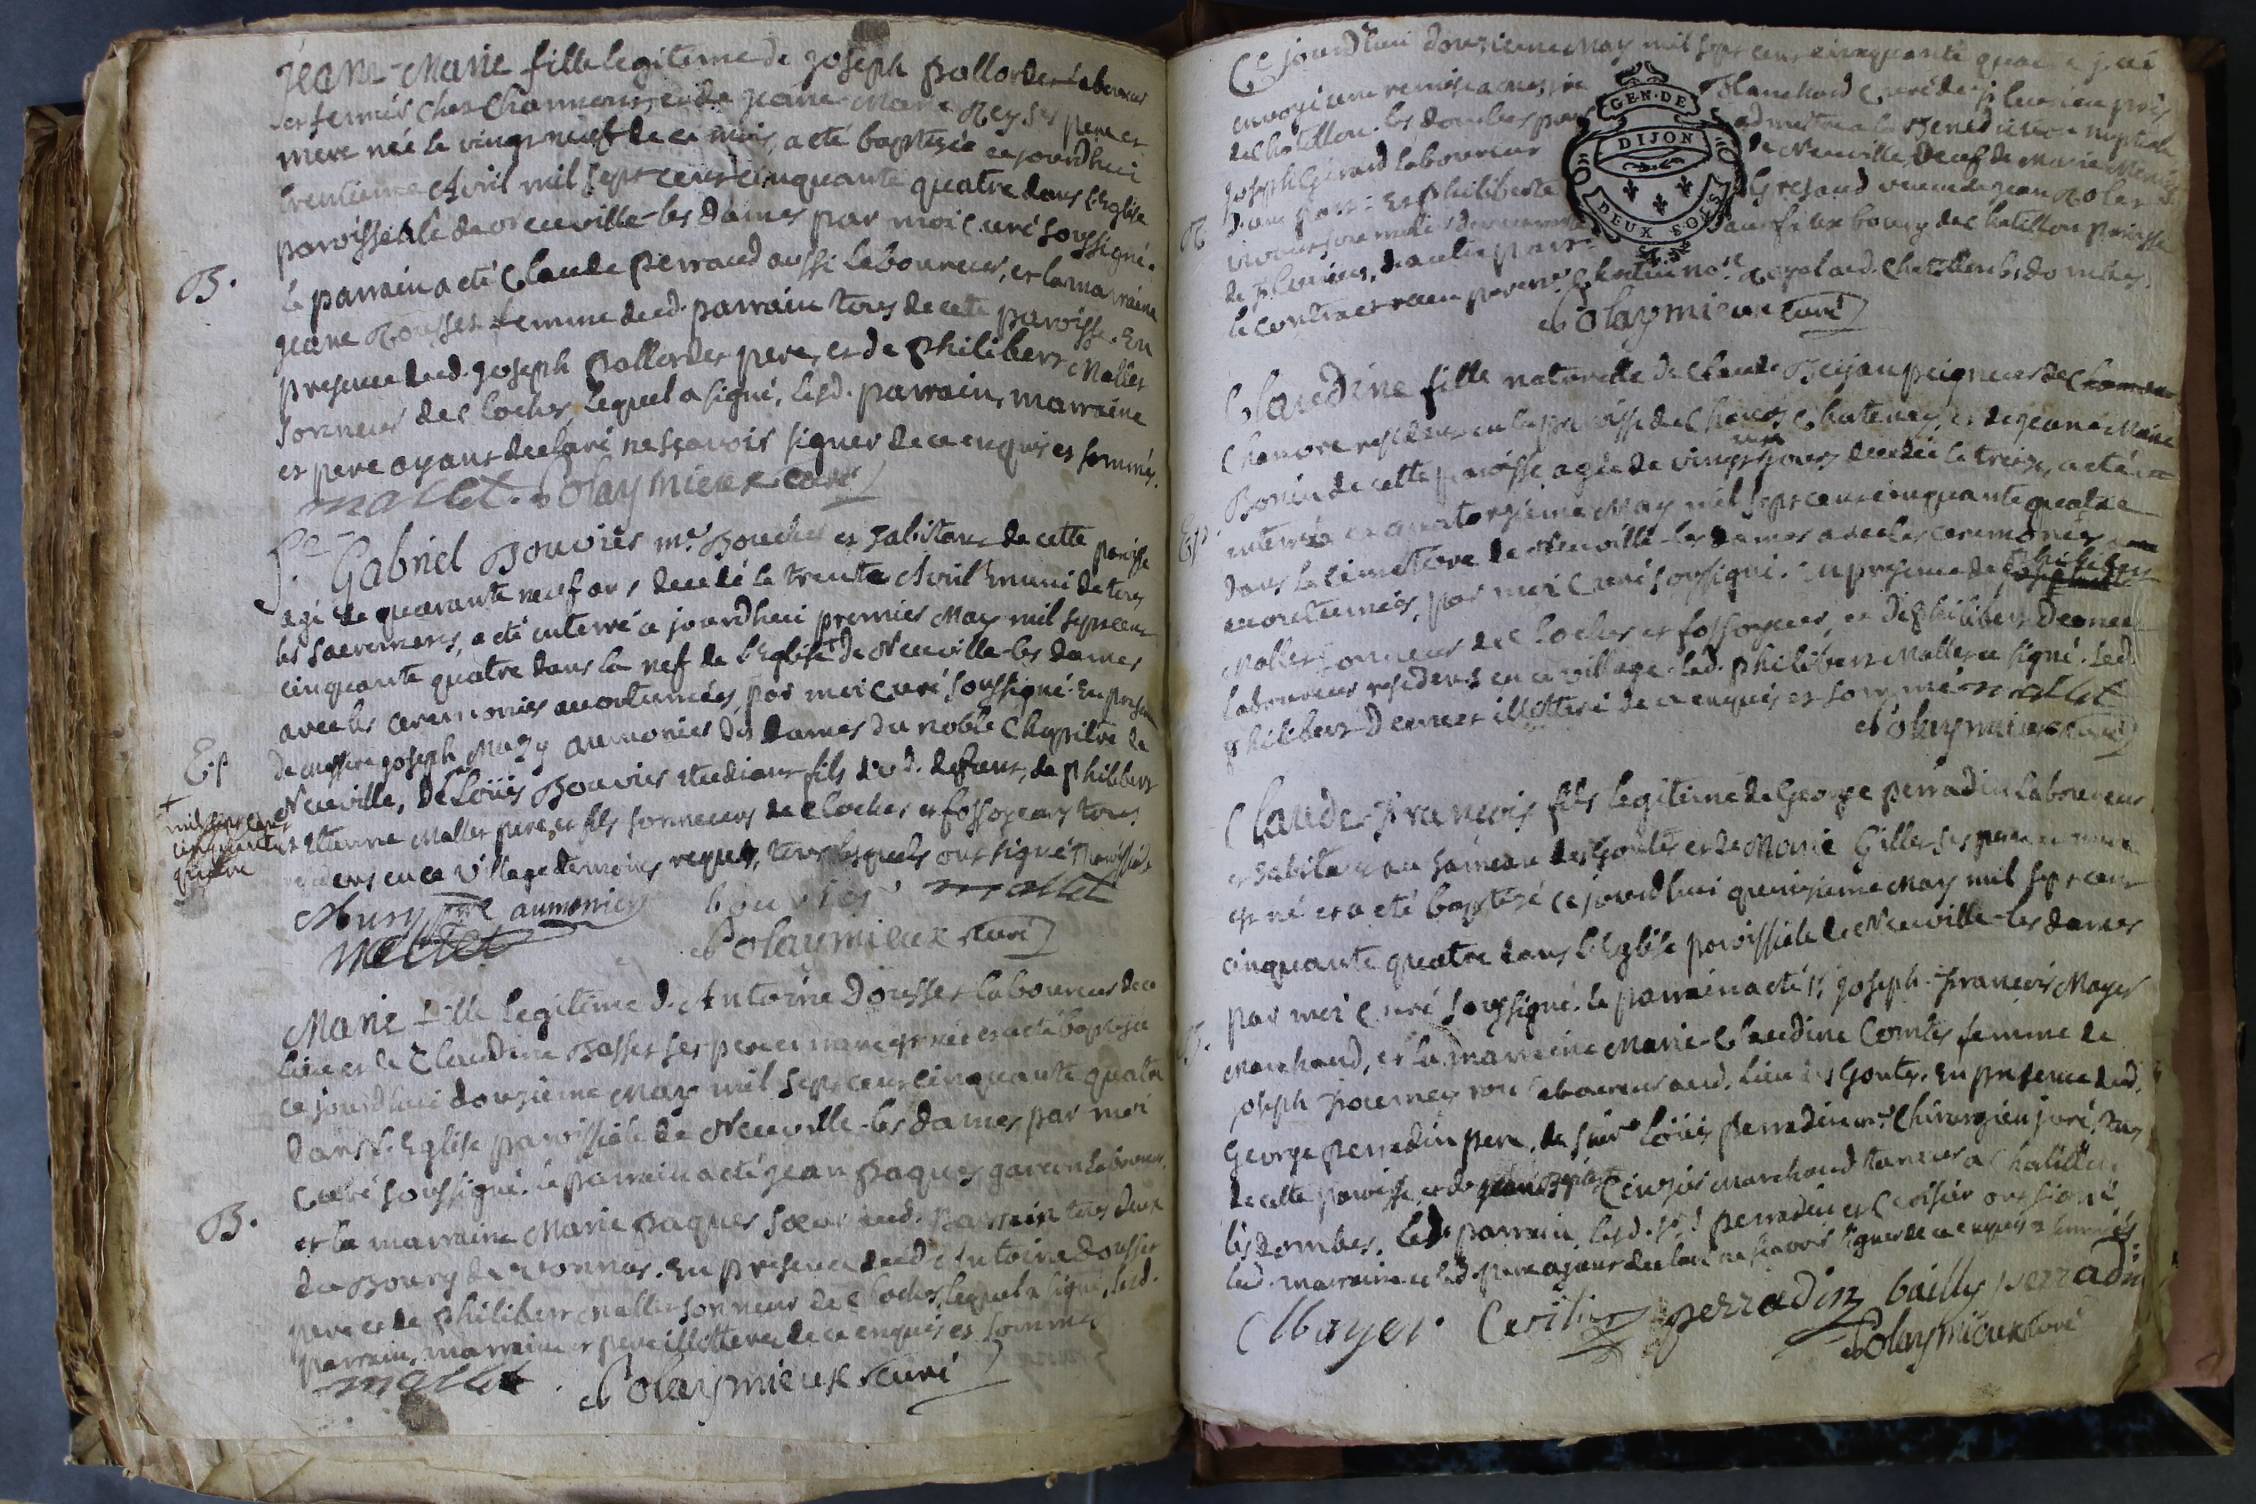 Jeane-Marie fille legitime de Joseph Pollordet Laboureur
et fermier chez Channour, et de Jeane-Marie Rey ses pere et
mere née le vingt neuf de ce mois, a eté baptisée cejourdhui
trentieme Avril mil sept cent cinquante quatre dans l'Eglise
paroissialle de Neuville-les Dames par moi Curé soussigné.
B. le parrain a eté Claude Perraud aussi Laboureur, et la marraine
Jeane Rousset femme dud. parrain tous de cette paroisse. En
presence dud. Joseph Pollordet pere, et de Philibert Mallet
sonneur de Cloches, lequel a signé, lesd. parrain, marraine
et pere ayant declaré ne sçavoir signer de ce enquis et sommés.
mallet. Polaymieux curé
Sr. Gabriel Bouvier me. Boucher et habitant de cette paroisse
agé de quarante neuf ans decedé le trente Avril muni de tous
les sacremens, a eté enterré ajourdhui premier May mil sept cent
cinquante quatre dans la nef de l'Eglise de Neuville-les dames
avec les ceremonies accoutumées, par moi Curé soussigné. En presence
E.p de messire Joseph Mury aumonier des Dames du noble Chapitre de
Neuville, de Loüis Bouvier etudiant fils dud. defunt, de Philibert
et Etienne Mallet pere, et fils sonneurs de Cloches et fossoyeurs tous
residens en ce village temoins requis, tous lesquels ont signé
+ mil sept cent
cinquante
quatre
Mury ptre aumonier bouvier mallet
mallet Polaymieux curé
Marie fille legitime d'Antoine Dousset laboureur de ce
lieu et de Claudine Basset ses pere et mere est née et a eté baptisée
ce jourdhui douzieme May mil sept cent cinquante quatre
dans l'Eglise paroissiale de Neuville-les dames par moi
Curé soussigné. le parrain a eté Jean Paques garcon Laboureur,
B. et la marraine Marie Paques soeur dud. Parrain tous deux
du Bourg de Vonnas. En presence dud. Antoine Dousset
pere et de Philibert Mallet sonneur de Cloches, lequel a signé, lesd.
parrain, marraine et pere illitterés de ce enquis et sommés
mallet. Polaymieux curé
Ce jourdhui douzieme May mil sept cent cinquante quatre j'ai
envoyé une remise a messire Blanchard Curé de
de Chatillon-les dombes pour admettre a la Benediction nuptiale
Joseph Gerard Laboureur de Neuville, veuf de Marie
d'une part: Et Philiberte veuve de Jean
de d'autre part: bourg de Chatillon paroisse
le contract recu par me. Chatillon-les dombes.
Polaymieux curé
Claudine fille naturelle de Claude Bejan peigneur de
Chanvre resident en la paroisse de Chatenay, et de Jeane Marie
Bonin de cette paroisse agée de vingt un jours decedée le treize, a eté
E.p enterrée ce quatorzieme May mil sept cent cinquante quatre
dans le cimetiere de Neuville-les dames avec les ceremonies
accoutumées, par moi Curé soussigné. En presence de Philibert
Mallet sonneur de Cloches et fossoyeur, et de Philibert Demet
Laboureur residens en ce village. led. Philibert Mallet a signé. led.
Philibert Demet illitteré de ce enquis et sommé mallet
Polaymieux curé
Claude-François fils legitime de George Perradin Laboureur
et habitant au hameau des Goutes et de Marie Gillet ses pere et mere
est né et a eté baptisé ce jourdhui quinzieme May mil sept cent
cinquante quatre dans l'Eglise paroissiale de Neuville-les dames
par moi Curé soussigné. le parrain a eté sr. Joseph-François Mayer
B. Marchand, et la marraine Marie-Claudine Comte femme de
Joseph laboureur aud. lieu des Goutes. En presence dud.
George Perradin pere, de Sieur Loüis Perradin me. Chirurgien juré, tous
de cette paroisse, et de marchand tanneur a Chatillon
les dombes. led. parrain, lesd. srs. Perradin et ont signé
led. marraine et led. pere ayant declaré ne sçavoir signer de ce enquis et sommés
Mayer. perradin bailly perradin
Polaymieux curé
GEN. DE
DIJON
DEUX SOLS